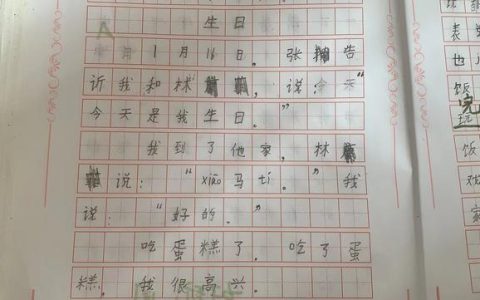 生日
A
1月16日。张 告
诉我和林 ，说：今天“
今天是我生日。”
我到了他家，林
说：“xiǎo马tí。”我
说：“好的。”
吃蛋糕了。吃了蛋
糕。我很高兴。
表
也
饭
完
玩
饭
戏
家